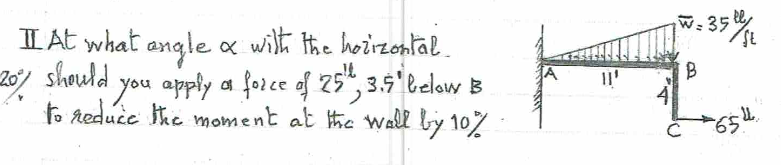 II At what angle α with the hoirzontal
20% should you apply a force of 25", 3.5' below B
to reduce the moment at the wall by 10%
w̅ = 35 lb/ft
A
11'
B
4'
C
65 lb